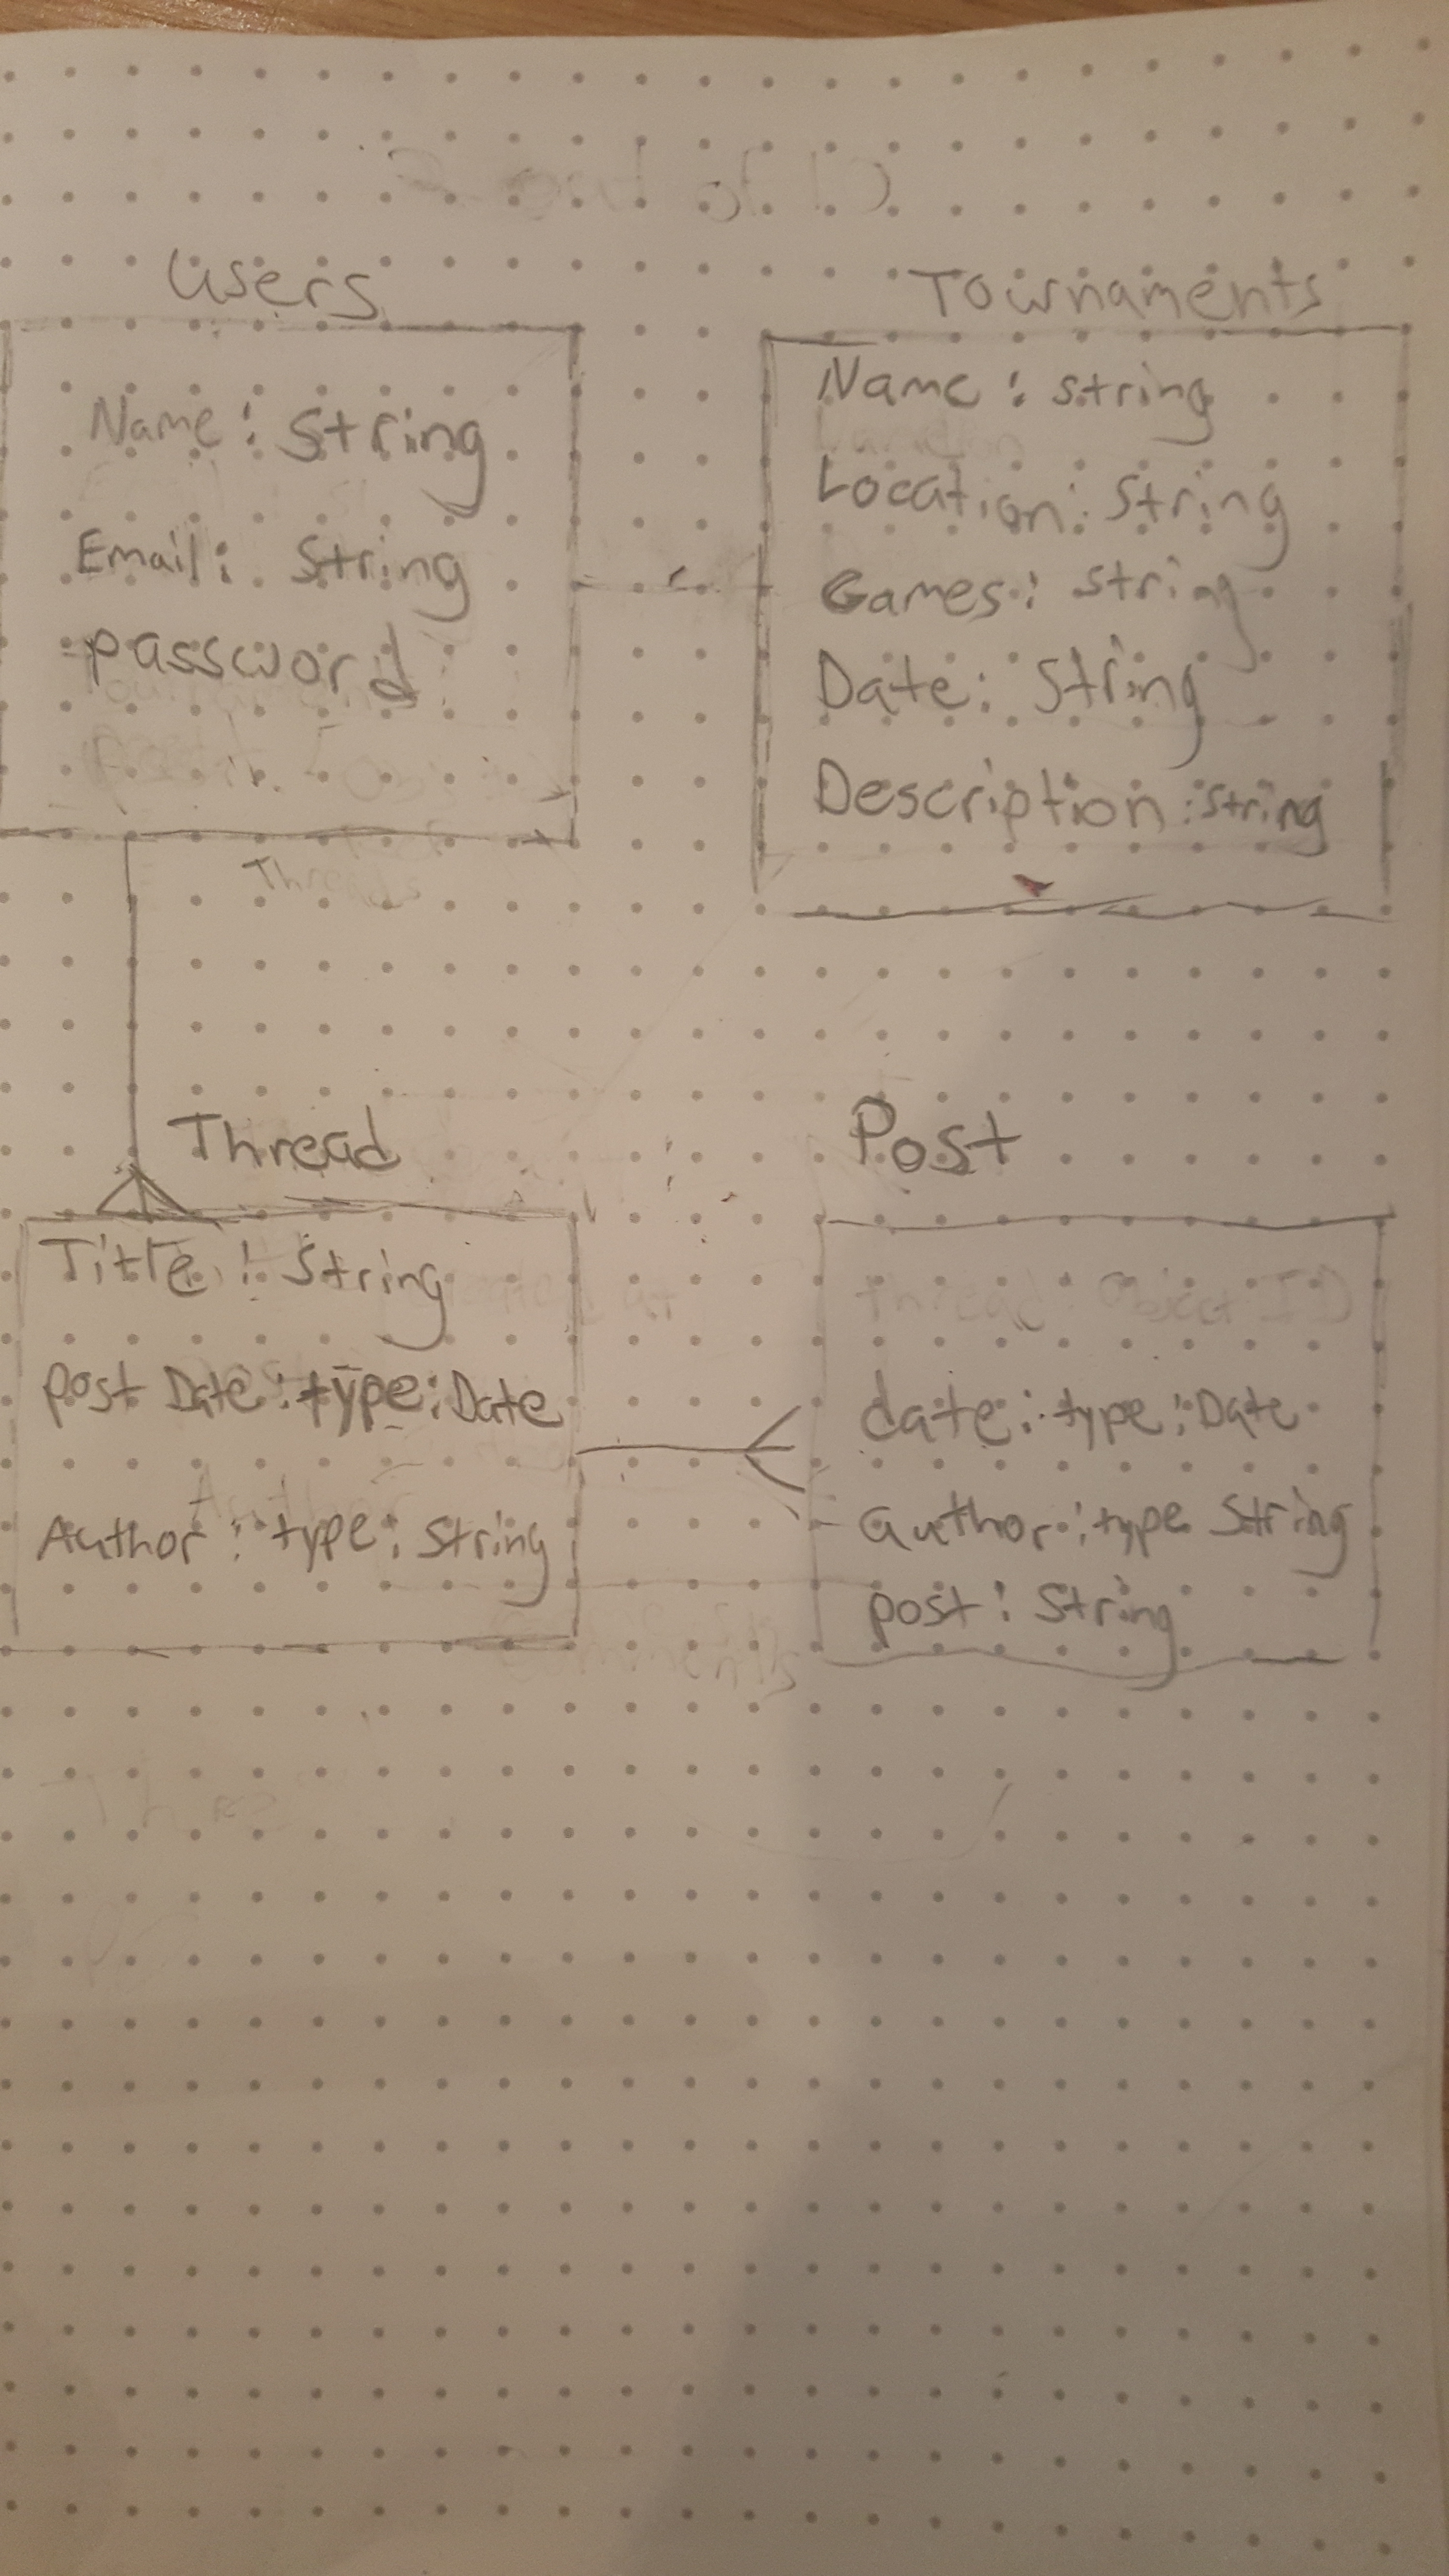 Users
Name: String
Email: String
password
Threads
Tournaments
Name: String
Location: String
Games: String
Date: String
Description: String
Thread
Title: String
post Date: type: Date
Author: type: String
Post
thread: Object ID
date: type: Date
author: type String
post: String